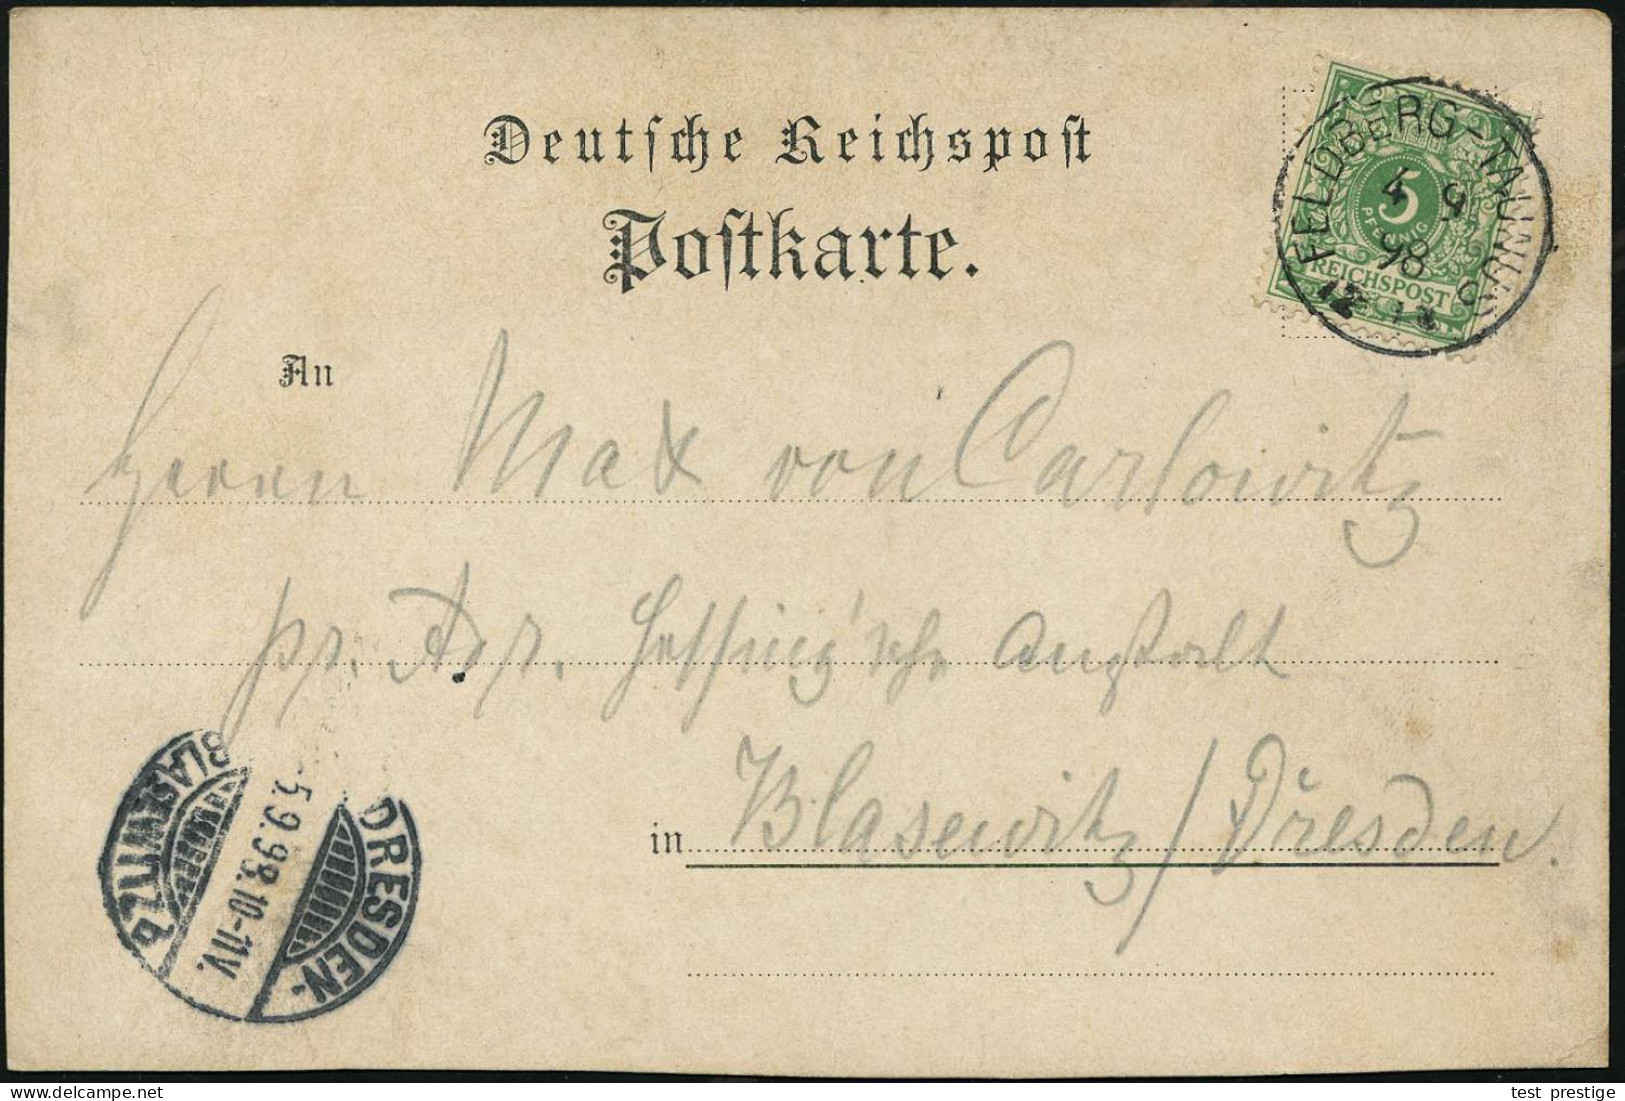 Deutsche Reichspost
Postkarte.
FELDBERG-TAUNUS
4 9
98
5
PFENNIG
REICHSPOST
An
Herrn Max von Carlowitz
pr. Adr. 'sche Anstalt
in Blasewitz/Dresden.
BLASEWITZ
5.9.98.10-11V.
DRESDEN-
test prestige